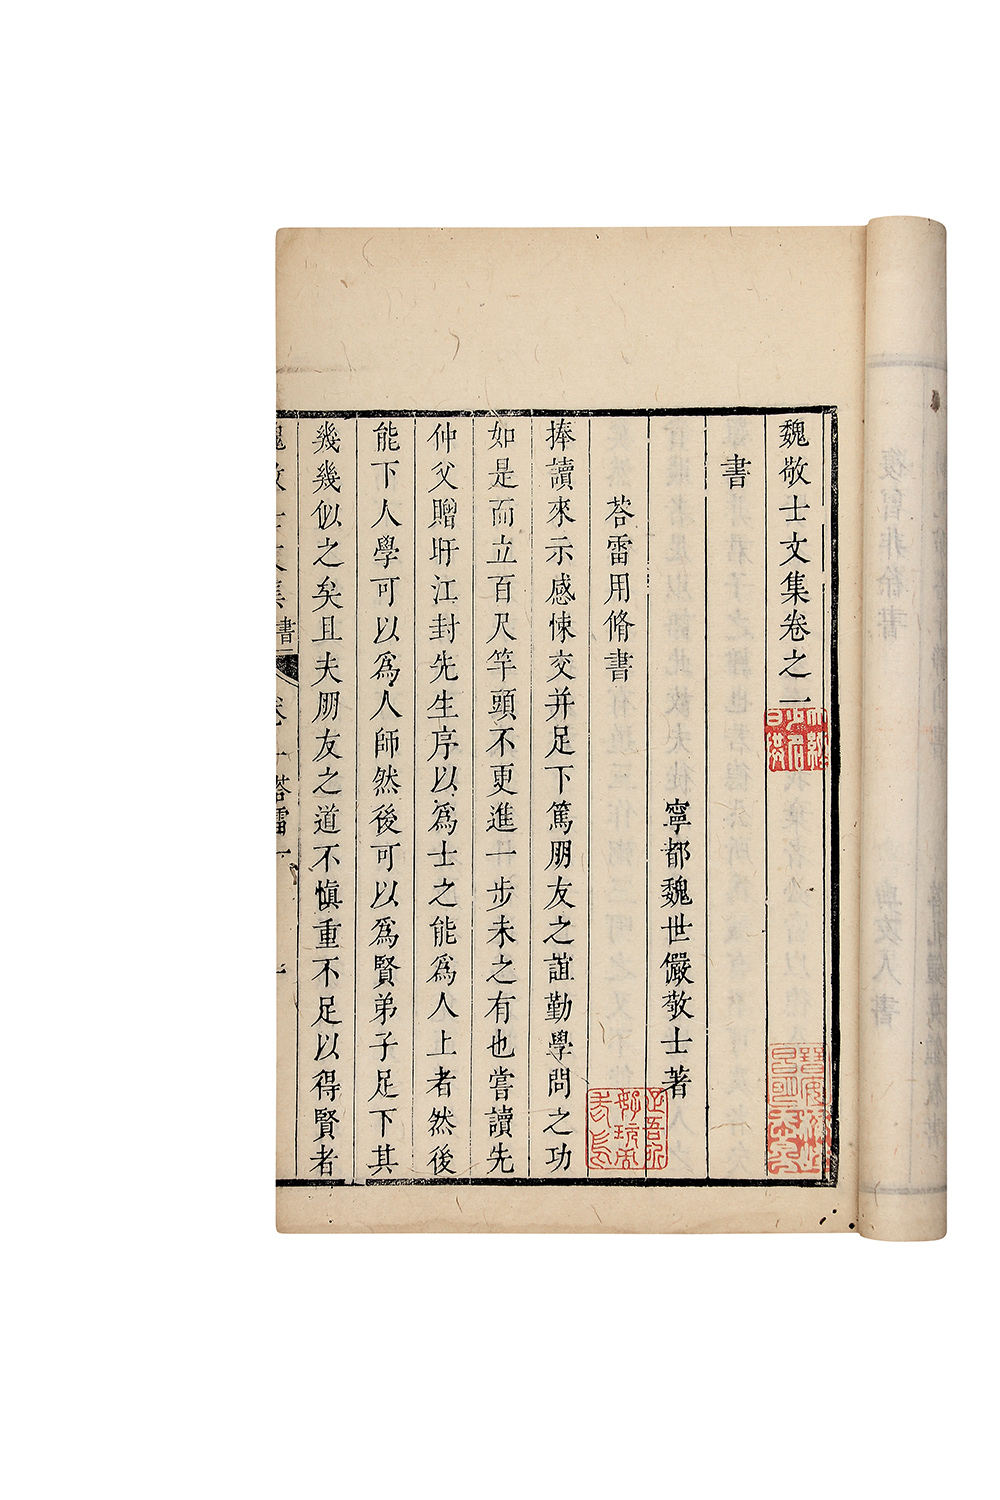 魏敬士文集卷之一
書
寧都魏世儼敬士著
荅雷用脩書
捧讀來示感悚交并足下篤朋友之誼勤學問之功
如是而立百尺竿頭不更進一步未之有也嘗讀先
仲父贈盱江封先生序以爲士之能爲人上者然後
能下人學可以爲人師然後可以爲賢弟子足下其
幾幾似之矣且夫朋友之道不慎重不足以得賢者